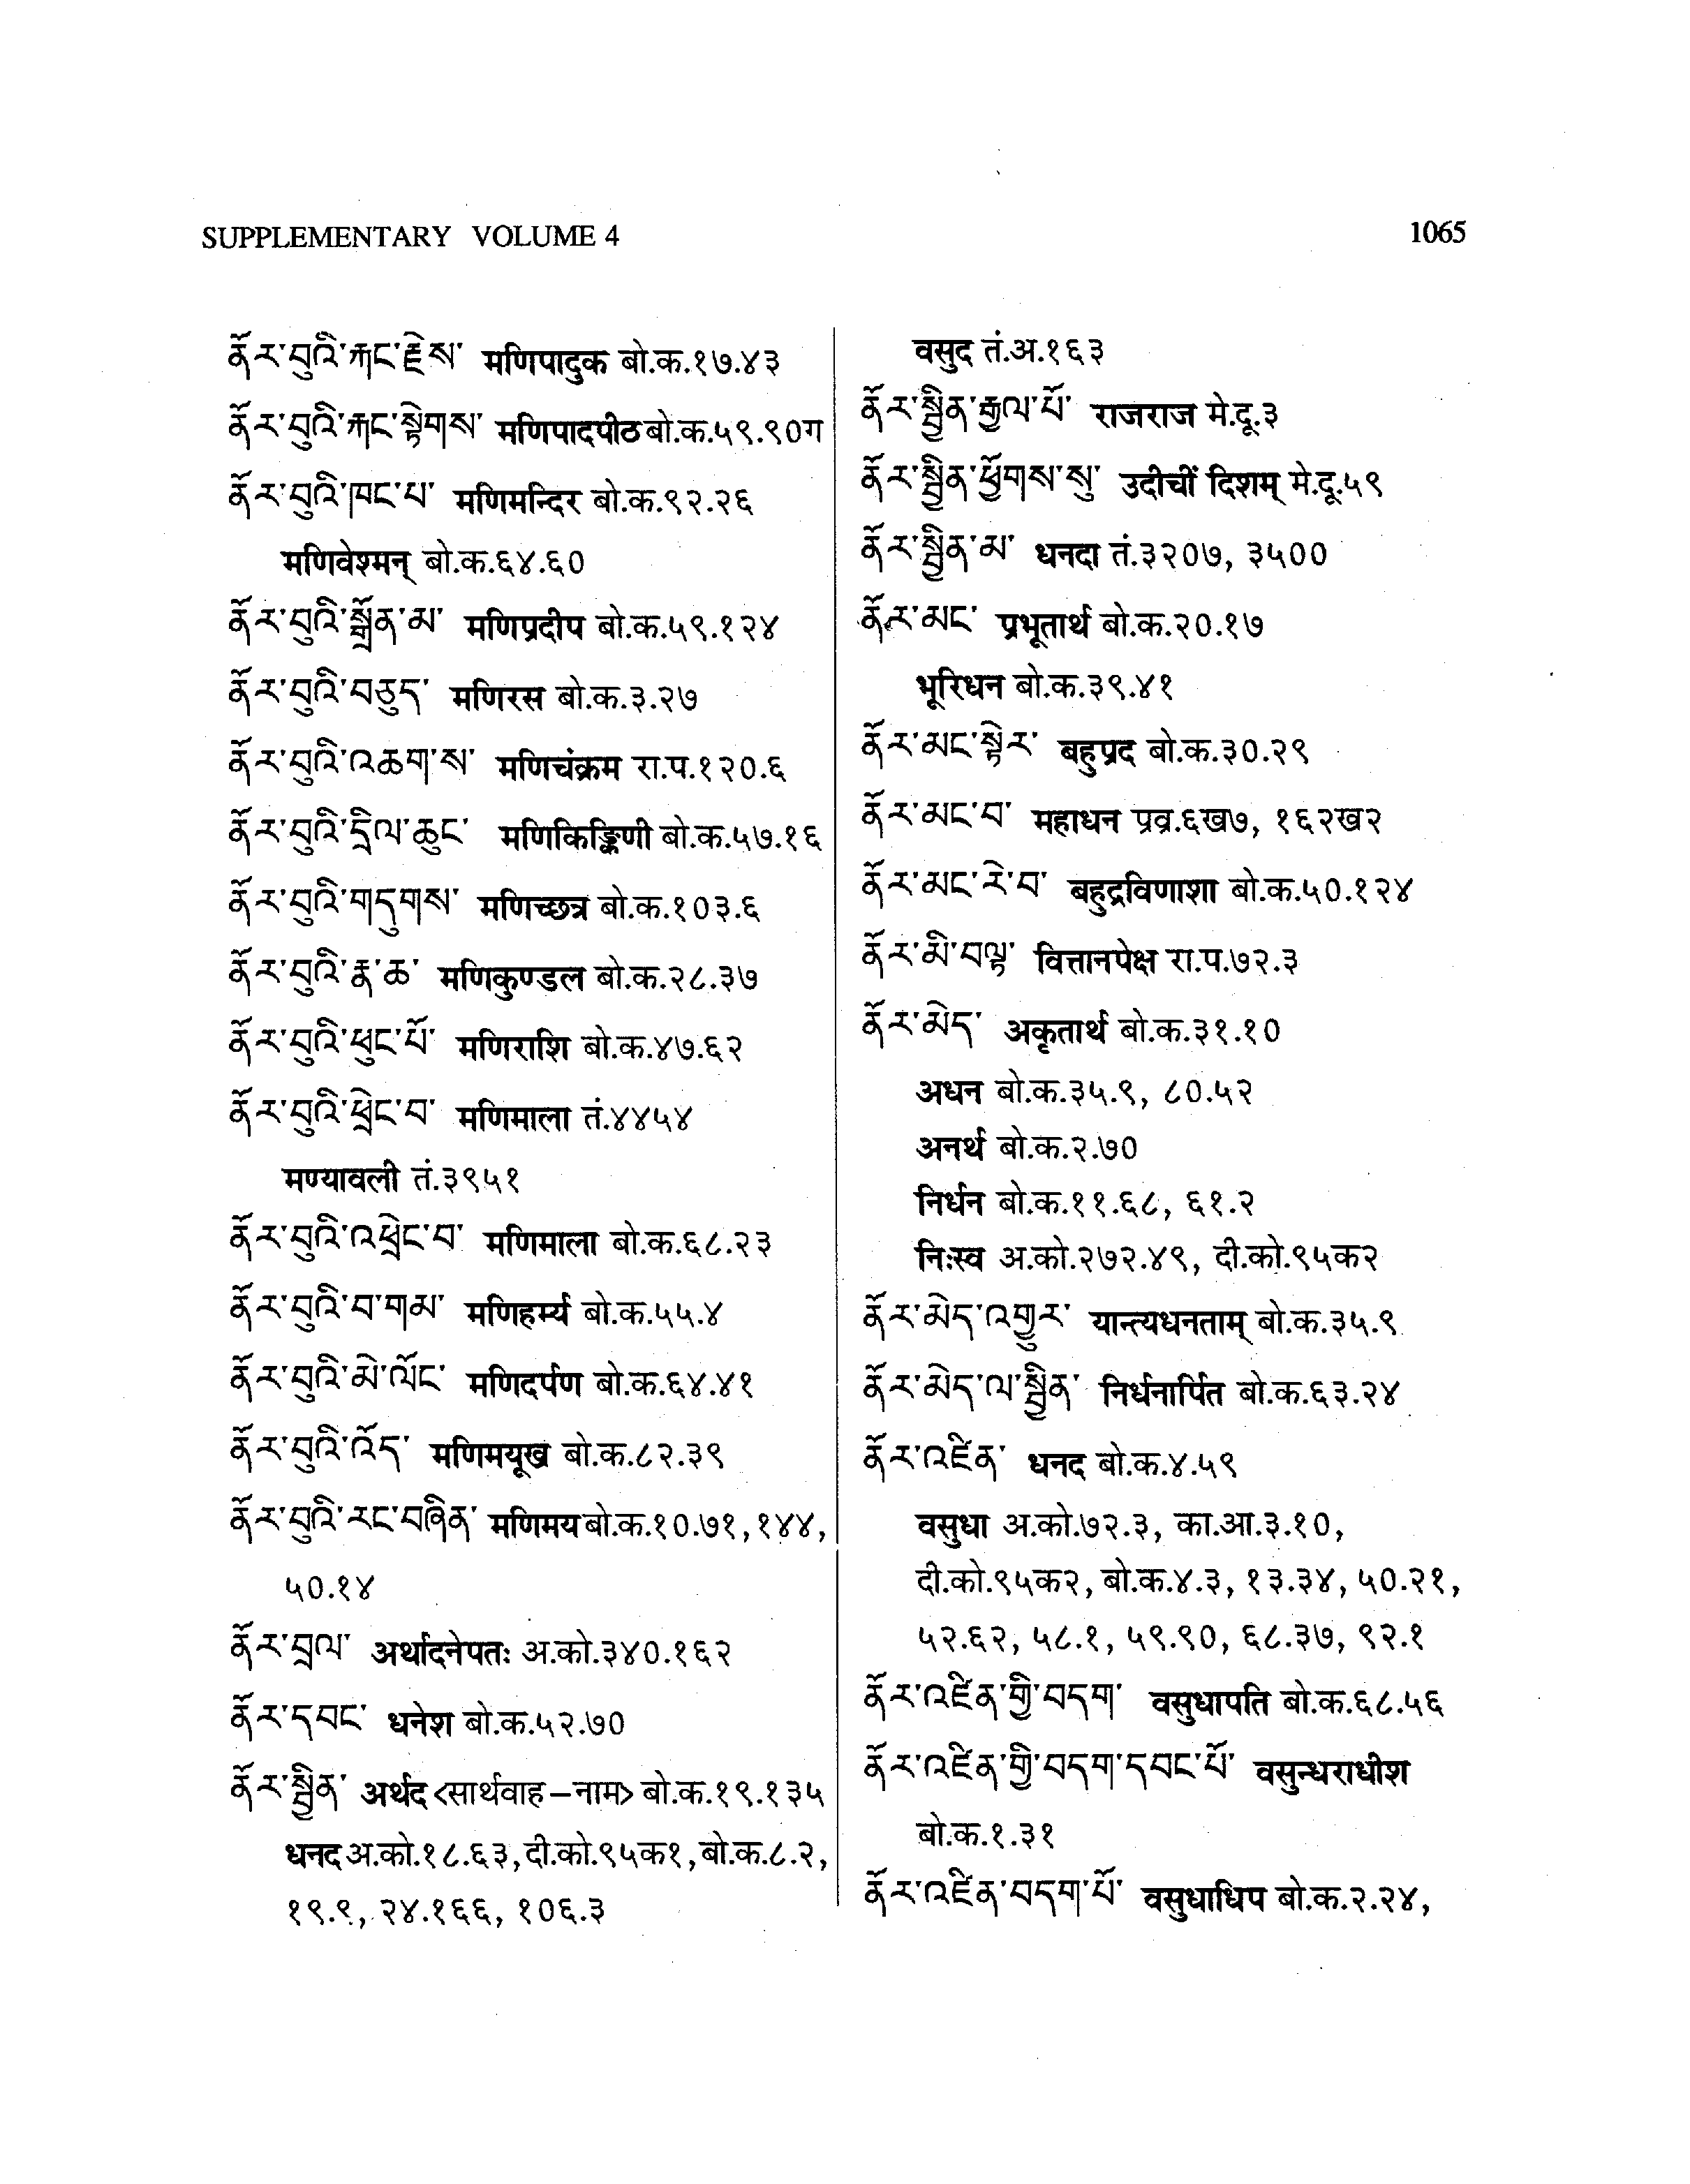 SUPPLEMENTARY VOLUME 4
1065
ནོར་བུའི་རྐང་རྗེས་ मणिपादुक बो.क.१७.४३
ནོར་བུའི་རྐང་སྟེགས་ मणिपादपीठ बो.क.५९.९०ग
ནོར་བུའི་ཁང་པ་ मणिमन्दिर बो.क.९२.२६
मणिवेश्मन् बो.क.६४.६०
ནོར་བུའི་སྒྲོན་མ་ मणिप्रदीप बो.क.५९.१२४
ནོར་བུའི་བཅུད་ मणिरस बो.क.३.२७
ནོར་བུའི་འཆག་ས་ मणिचंक्रम रा.प.१२०.६
ནོར་བུའི་དྲིལ་ཆུང་ मणिकिङ्किणी बो.क.५७.१६
ནོར་བུའི་གདུགས་ मणिच्छत्र बो.क.१०३.६
ནོར་བུའི་རྣ་ཆ་ मणिकुण्डल बो.क.२८.३७
ནོར་བུའི་ཕུང་པོ་ मणिराशि बो.क.४७.६२
ནོར་བུའི་ཕྲེང་བ་ मणिमाला तं.४४५४
मण्यावली तं.३९५१
ནོར་བུའི་འཕྲེང་བ་ मणिमाला बो.क.६८.२३
ནོར་བུའི་བ་གམ་ मणिहर्म्य बो.क.५५.४
ནོར་བུའི་མེ་ལོང་ मणिदर्पण बो.क.६४.४१
ནོར་བུའི་འོད་ मणिमयूख बो.क.८२.३९
ནོར་བུའི་རང་བཞིན་ मणिमय बो.क.१०.७१, १४४,
५०.१४
ནོར་བྲལ་ अर्थादनेपतः अ.को.३४०.१६२
ནོར་དབང་ धनेश बो.क.५२.७०
ནོར་སྦྱིན་ अर्थद <सार्थवाह–नाम> बो.क.१९.१३५
धनद अ.को.१८.६३, दी.को.९५क१, बो.क.८.२,
१९.९, २४.१६६, १०६.३
वसुद तं.अ.१६३
ནོར་སྦྱིན་རྒྱལ་པོ་ राजराज मे.दू.३
ནོར་སྦྱིན་ཕྱོགས་སུ་ उदीचीं दिशम् मे.दू.५९
ནོར་སྦྱིན་མ་ धनदा तं.३२०७, ३५००
ནོར་མང་ प्रभूतार्थ बो.क.२०.१७
भूरिधन बो.क.३९.४१
ནོར་མང་སྟེར་ बहुप्रद बो.क.३०.२९
ནོར་མང་བ་ महाधन प्रव्र.६ख७, १६२ख२
ནོར་མང་རེ་བ་ बहुद्रविणाशा बो.क.५०.१२४
ནོར་མི་བལྟ་ वित्तानपेक्ष रा.प.७२.३
ནོར་མེད་ अकृतार्थ बो.क.३१.१०
अधन बो.क.३५.९, ८०.५२
अनर्थ बो.क.२.७०
निर्धन बो.क.११.६८, ६१.२
निःस्व अ.को.२७२.४९, दी.को.९५क२
ནོར་མེད་འགྱུར་ यान्त्यधनताम् बो.क.३५.९
ནོར་མེད་ལ་སྦྱིན་ निर्धनार्पित बो.क.६३.२४
ནོར་འཛིན་ धनद बो.क.४.५९
वसुधा अ.को.७२.३, का.आ.३.१०,
दी.को.९५क२, बो.क.४.३, १३.३४, ५०.२१,
५२.६२, ५८.१, ५९.९०, ६८.३७, ९२.१
ནོར་འཛིན་གྱི་བདག་ वसुधापति बो.क.६८.५६
ནོར་འཛིན་གྱི་བདག་དབང་པོ་ वसुन्धराधीश
बो.क.१.३१
ནོར་འཛིན་བདག་པོ་ वसुधाधिप बो.क.२.२४,